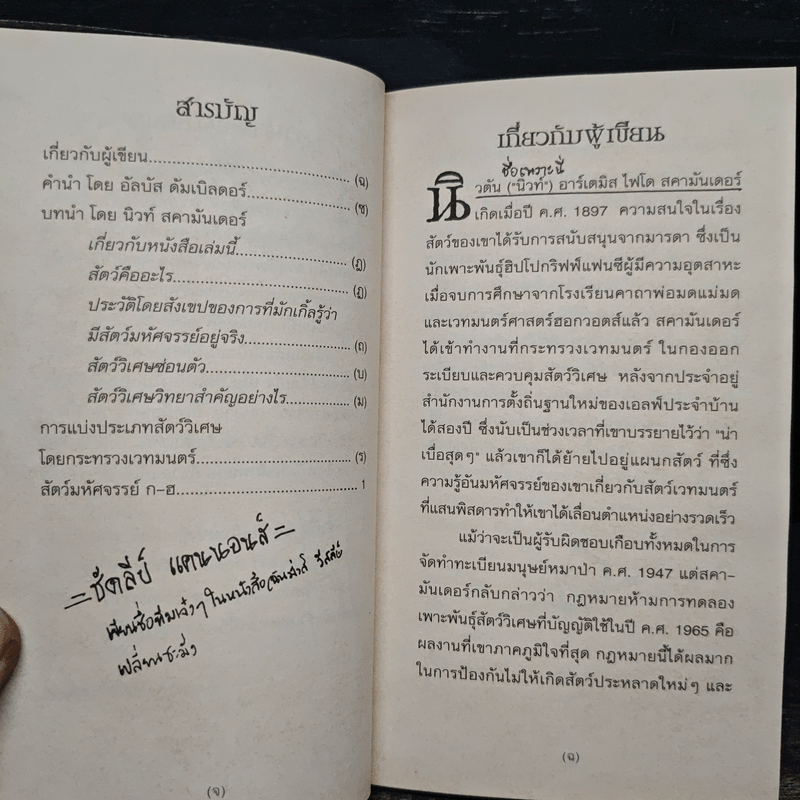 สารบัญ
เกี่ยวกับผู้เขียน.................................................(ฉ)
คำนำ โดย อัลบัส ดัมเบิลดอร์...........................(ซ)
บทนำ โดย นิวท์ สคามันเดอร์
เกี่ยวกับหนังสือเล่มนี้..........................(ฎ)
สัตว์คืออะไร...................................(ฏ)
ประวัติโดยสังเขปของการที่มักเกิ้ลรู้ว่า
มีสัตว์มหัศจรรย์อยู่จริง........................(ถ)
สัตว์วิเศษซ่อนตัว...............................(บ)
สัตว์วิเศษวิทยาสำคัญอย่างไร................(ม)
การแบ่งประเภทสัตว์วิเศษ
โดยกระทรวงเวทมนตร์....................................(ร)
สัตว์มหัศจรรย์ ก-ฮ..........................................1
=ชัดลีย์ แคนนอนส์=
เปลี่ยนซะมั่ง
(จ)
เกี่ยวกับผู้เขียน
ชื่อเพราะนี่
นิวตัน ("นิวท์") อาร์เตมิส ไฟโด สคามันเดอร์
เกิดเมื่อปี ค.ศ. 1897 ความสนใจในเรื่อง
สัตว์ของเขาได้รับการสนับสนุนจากมารดา ซึ่งเป็น
นักเพาะพันธุ์ฮิปโปกริฟฟ์แฟนซีผู้มีความอุตสาหะ
เมื่อจบการศึกษาจากโรงเรียนคาถาพ่อมดแม่มด
และเวทมนตร์ศาสตร์ฮอกวอตส์แล้ว สคามันเดอร์
ได้เข้าทำงานที่กระทรวงเวทมนตร์ ในกองออก
ระเบียบและควบคุมสัตว์วิเศษ หลังจากประจำอยู่
สำนักงานการตั้งถิ่นฐานใหม่ของเอลฟ์ประจำบ้าน
ได้สองปี ซึ่งนับเป็นช่วงเวลาที่เขาบรรยายไว้ว่า "น่า
เบื่อสุดๆ" แล้วเขาก็ได้ย้ายไปอยู่แผนกสัตว์ ที่ซึ่ง
ความรู้อันมหัศจรรย์ของเขาเกี่ยวกับสัตว์เวทมนตร์
ที่แสนพิสดารทำให้เขาได้เลื่อนตำแหน่งอย่างรวดเร็ว
แม้ว่าจะเป็นผู้รับผิดชอบเกือบทั้งหมดในการ
จัดทำทะเบียนมนุษย์หมาป่า ค.ศ. 1947 แต่สคา-
มันเดอร์กลับกล่าวว่า กฎหมายห้ามการทดลอง
เพาะพันธุ์สัตว์วิเศษที่บัญญัติใช้ในปี ค.ศ. 1965 คือ
ผลงานที่เขาภาคภูมิใจที่สุด กฎหมายนี้ได้ผลมาก
ในการป้องกันไม่ให้เกิดสัตว์ประหลาดใหม่ๆ และ
(ฉ)